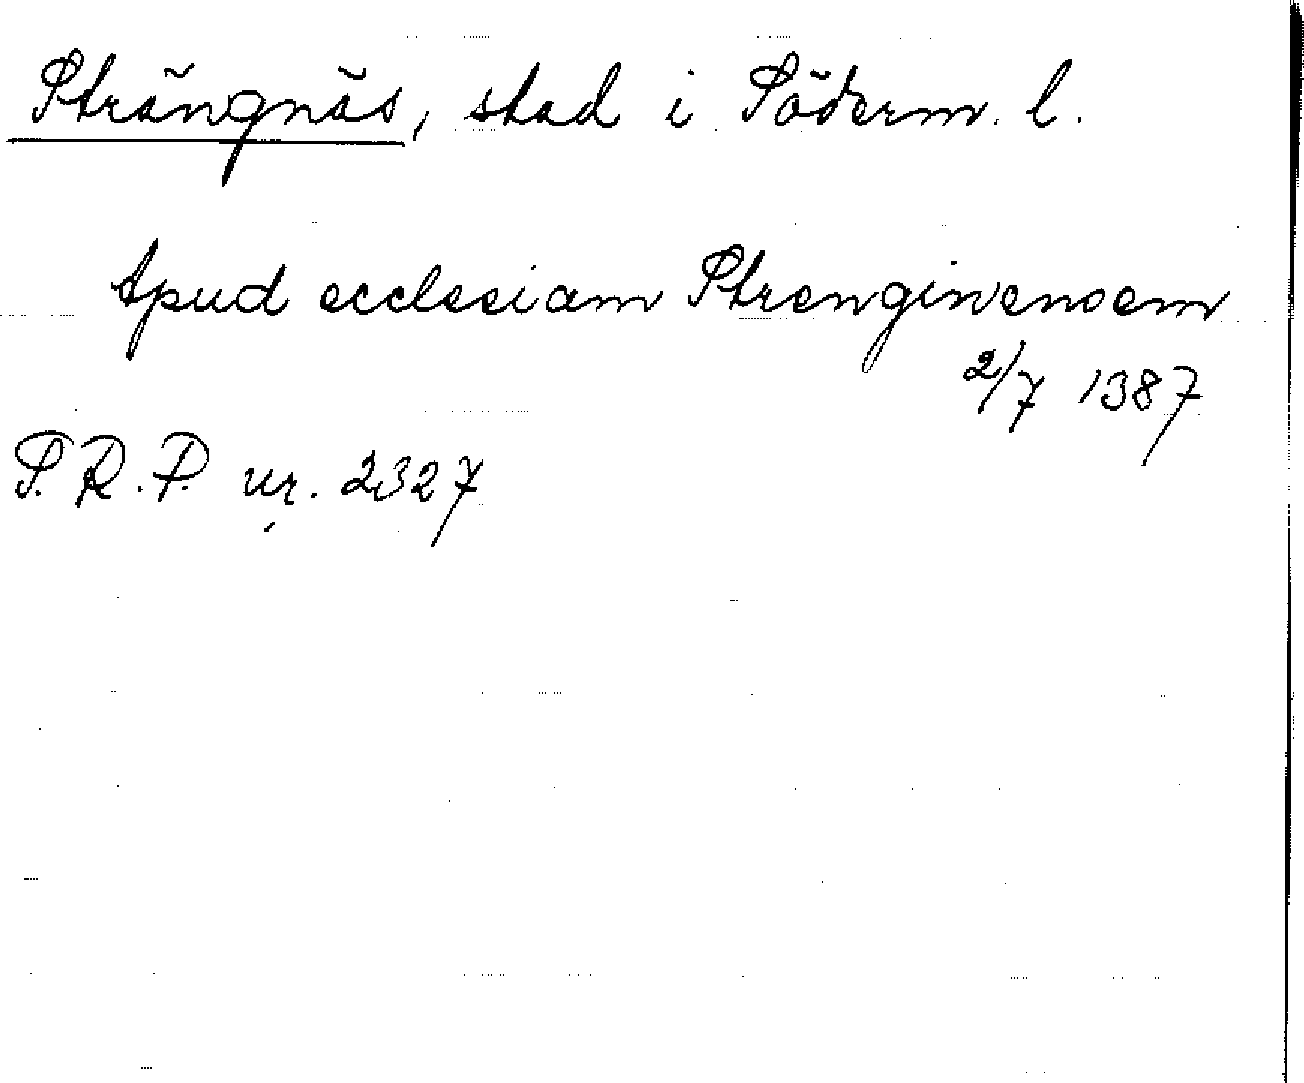 Strängnäs, stad i Söderm. l.
Apud ecclesiam Strenginensem
2/7 1387
S.R.P. nr. 2327